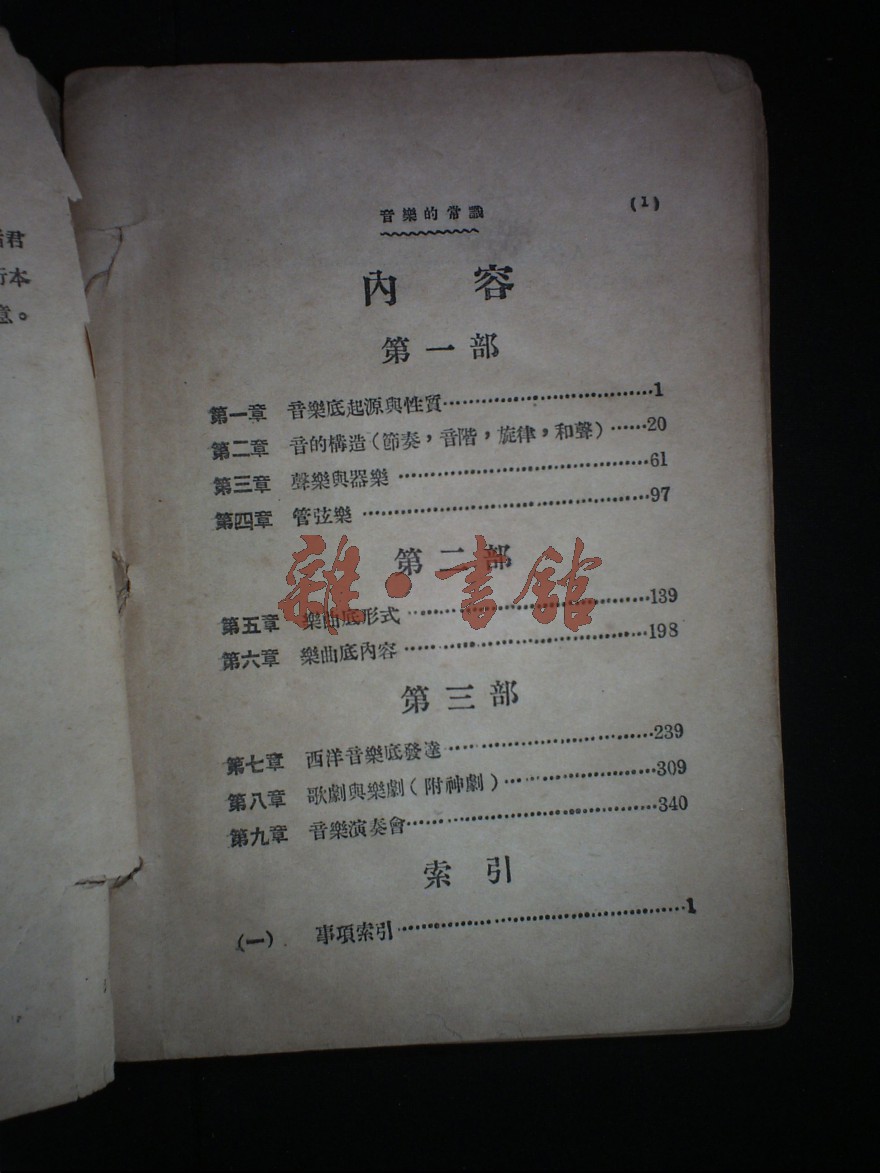 音樂的常識
(1)
內容
第一部
第一章 音樂底起源與性質……1
第二章 音的構造(節奏，音階，旋律，和聲)……20
第三章 聲樂與器樂……61
第四章 管弦樂……97
第二部
第五章 樂曲底形式……139
第六章 樂曲底內容……198
第三部
第七章 西洋音樂底發達……239
第八章 歌劇與樂劇(附神劇)……309
第九章 音樂演奏會……340
索引
(一) 事項索引……1
雜·書館
君
行本
意。